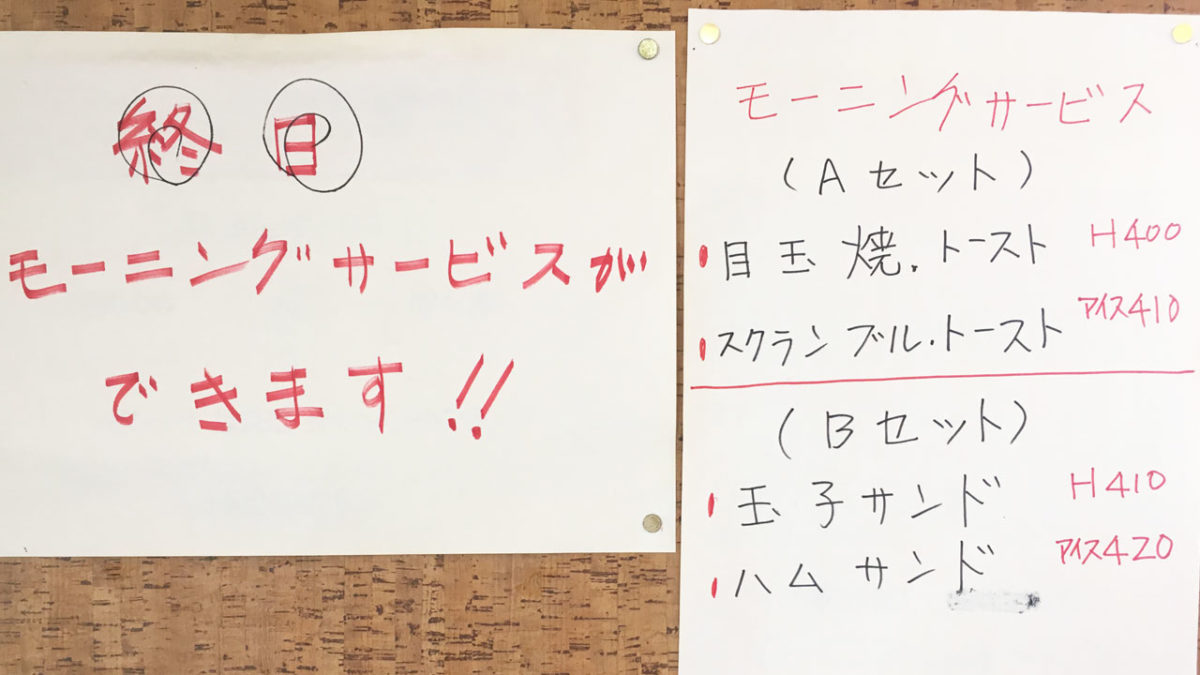 終日
モーニングサービスが
できます!!
モーニングサービス
(Aセット)
目玉焼.トースト H400
スクランブル.トースト アイス410
(Bセット)
玉子サンド H410
ハムサンド アイス420